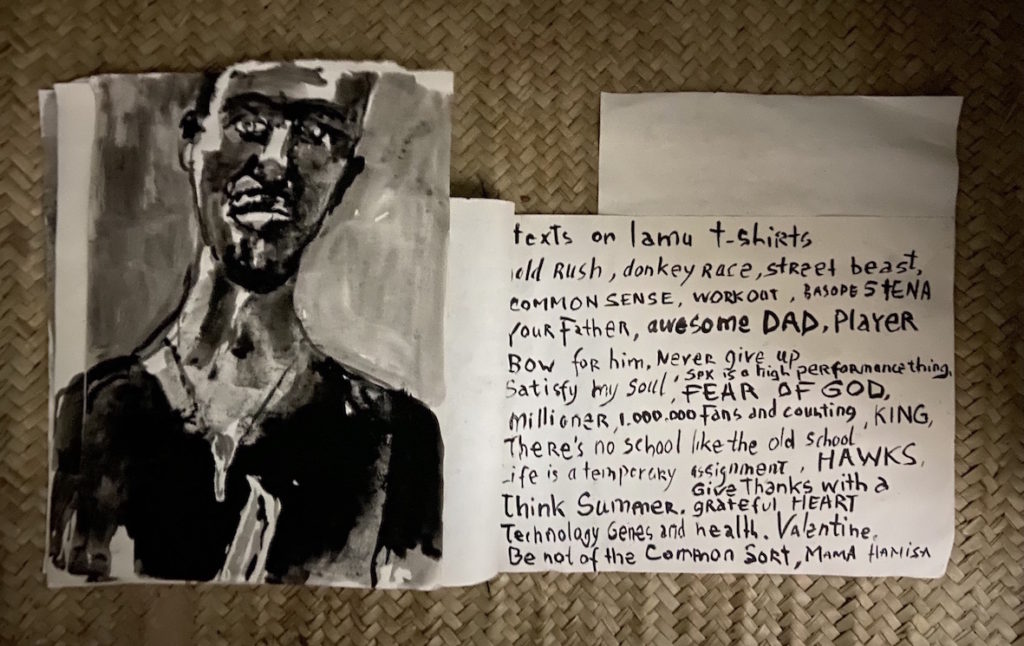 texts on lamu t-shirts
old Rush, donkey Race, street beast,
COMMON SENSE, WORKOUT, BASOPE STENA
your Father, awesome DAD, Player
Bow for him, Never give up
Satisfy my soul, SEX is a high performance thing,
FEAR OF GOD,
Millioner, 1.000.000 Fans and counting, KING,
There's no school like the old school
Life is a temporary assignment, HAWKS,
Think Summer. Give Thanks with a grateful HEART
Technology Genes and health. Valentine.
Be not of the Common Sort, MAMA HAMISA